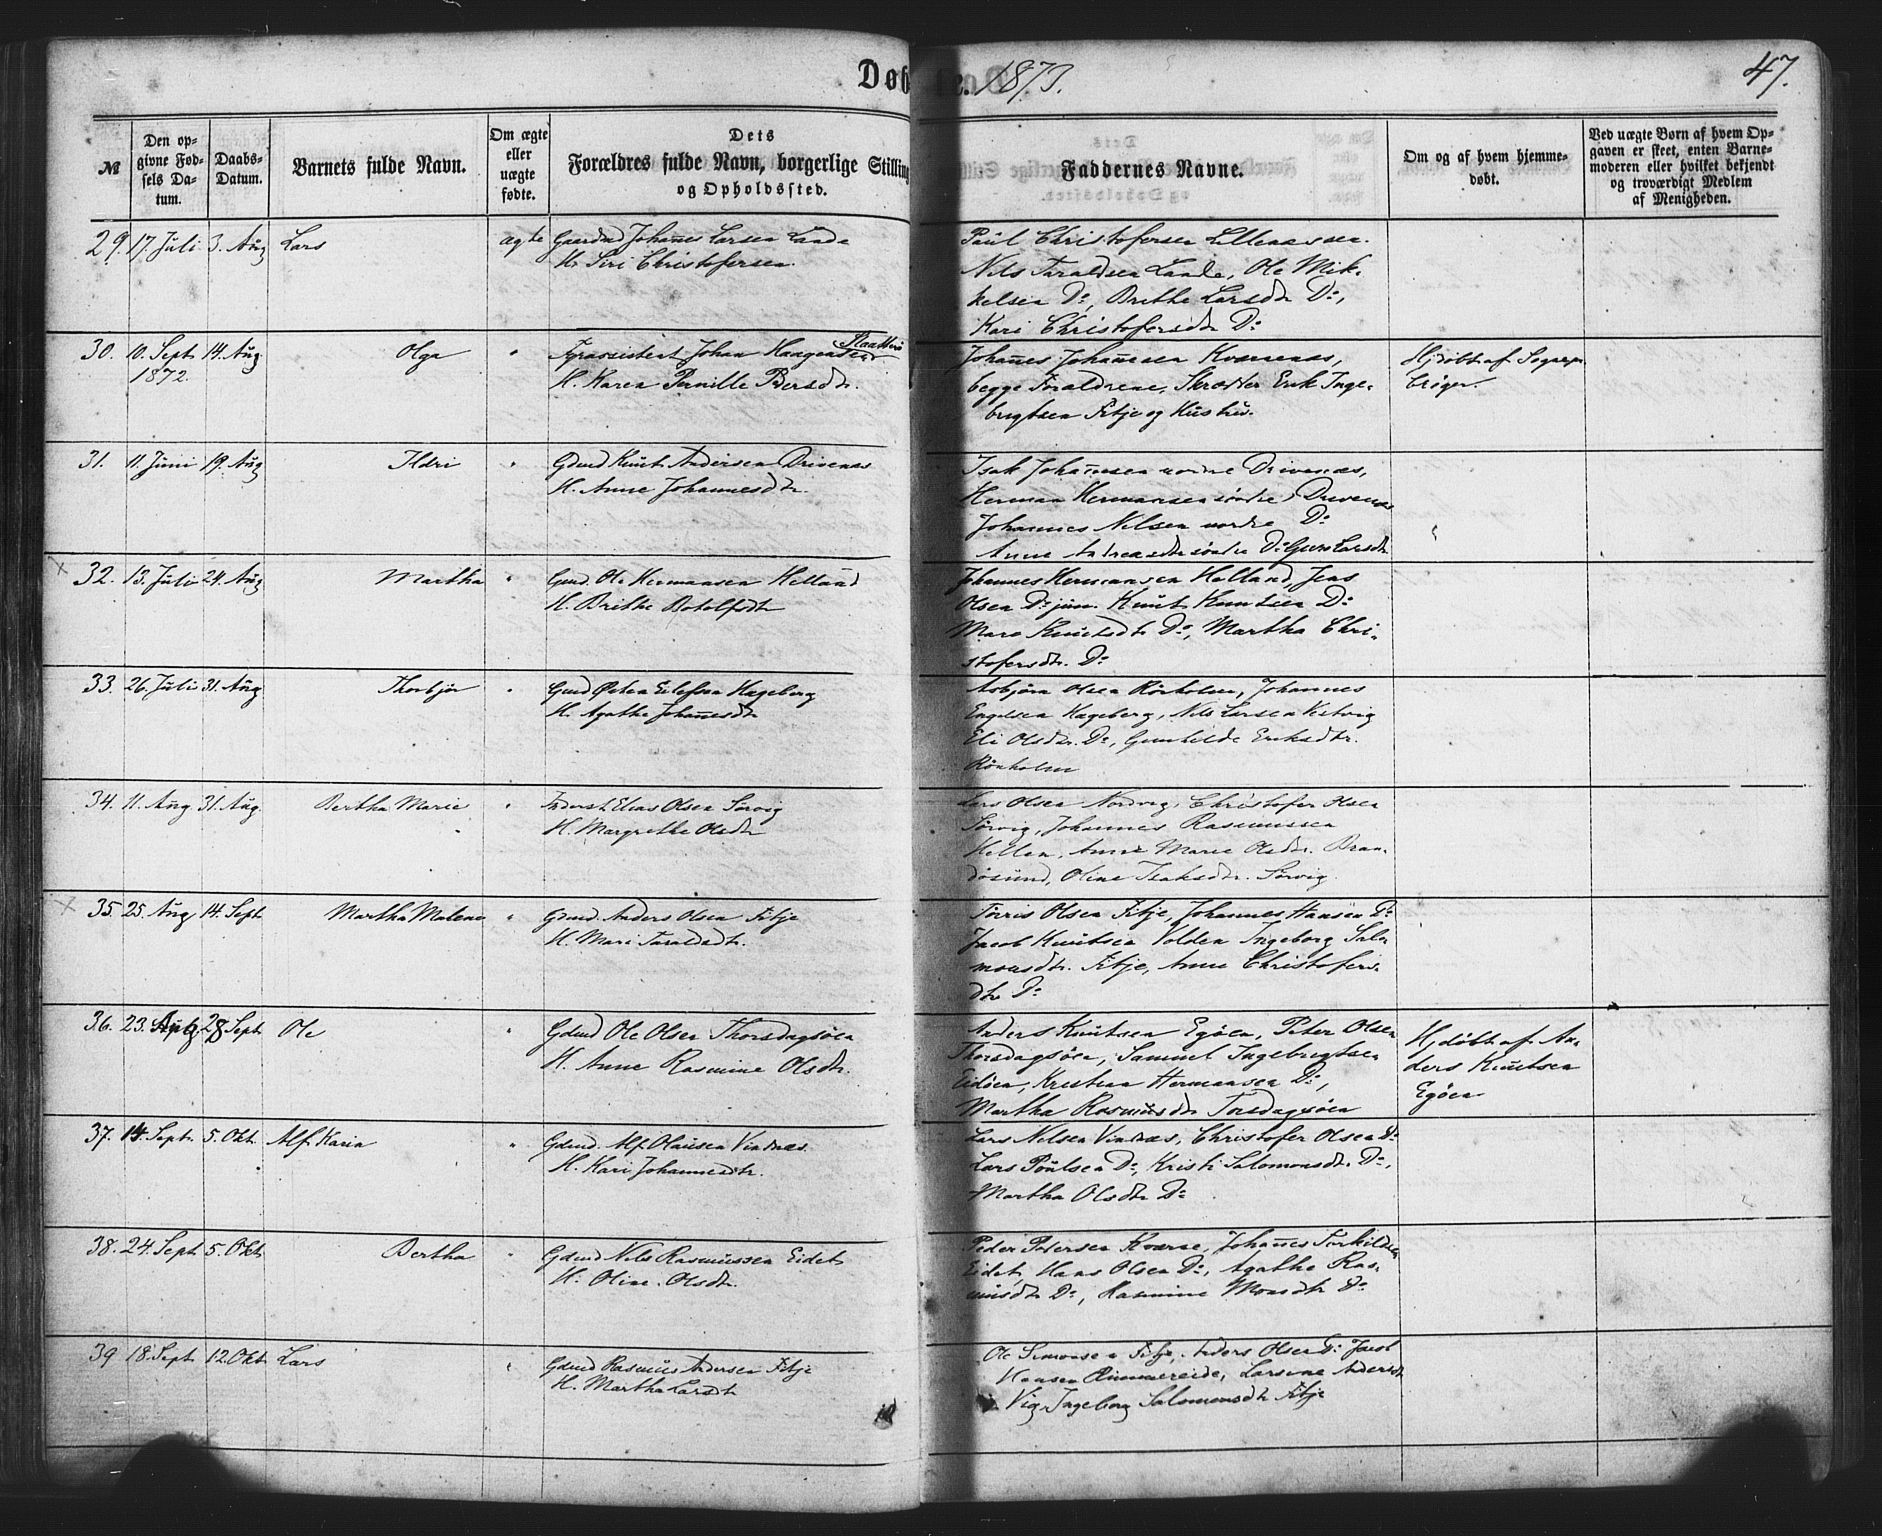 Døb
1873.
47.
№
Den op-
givne Fød-
sels Da-
tum.
Daabs-
Datum.
Barnets fulde Navn.
Om ægte
eller
uægte
fødte.
Dets
Forældres fulde Navn, borgerlige Stilling
og Opholdssted.
Faddernes Navne.
Om og af hvem hjemme-
døbt.
Ved uægte Børn af hvem Op-
gaven er skeet, enten Barne-
moderen eller hvilket bekjendt
og troværdigt Medlem
af Menigheden.
29. 17. Juli 3. Aug Lars ægte Gaardmd Johannes Larsen Lande
H. Siri Christofersen.
Paul Christofersen
Nils Taraldsen Lande, Ole Mik-
kelsen Do, Brithe Larsdtr Do,
Kari Christofersdtr Do
30. 10. Sept 14. Aug Olga " Johan Haagensen
1872.
H. Karen Pernille Bersdtr.
Johannes Johannesen Kværnenæs,
begge Forældrene, Skrædder Erik Inge-
brigtsen Fitje og Hustru.
Hjdøbt af
31. 11. Juni 19. Aug Ildri " Gdmd Knut Andersen Drivenæs
H. Anne Johannesdtr.
Isak Johannesen nordre Drivenæs,
Herman Hermansen søndre Drivenæs
Johannes Nilsen nordre Do
Anne Andreasdtr søndre Do Guro Larsdtr
32. 13. Juli 24. Aug Martha " Gmd. Ole Hermansen Helland
H. Brithe Botolfsdtr
Johannes Hermansen Helland, Jens
Olsen Do jun. Knut Knutsen Do
Knutsdtr Do, Martha Chri-
stofersdtr. Do
33. 26. Juli 31. Aug Thorbjør " Gmd Østen Eilefsen Hageberg
H. Agathe Johannesdtr
Asbjørn Olsen Rönholm, Johannes
Engelsen Hageberg, Nils Larsen Vestvig
Eli Olsdtr. Do, Gunhilde Eriksdtr.
Rönholm
34. 11. Aug 31. Aug. Bertha Marie " Inderst Elias Olsen Sörvig
H. Margrethe Olsdtr
Lars Olsen Nordvig, Christofer Olsen
Sörvig, Johannes Rasmussen
Hellen, Anne Marie Olsdtr. Bran-
dösund, Oline Isaksdtr. Sörvig.
35. 25. Aug 14. Sept Martha Malene " Gmd. Anders Olsen Fitje
H. Mari Taraldsdtr.
Torris Olsen Fitje, Johannes Hansen Do
Jacob Knutsen Volden Ingeborg Salo-
monsdtr. Fitje, Anne Christofers-
dtr Do
36. 23. Aug 28 Sept. Ole " Gdmd Ole Olsen Thorsdagsöen
H. Anne Rasmine Olsdtr.
Anders Knutsen Egöen, Peter Olsen
Thorsdagsöen, Samuel Ingebrigtsen
Eidöen, Kristian Hermansen Do,
Martha Rasmusdtr Torsdagsöen
Hjdöbt af An-
ders Knutsen
Egöen
37. 14. Sept. 5. Okt. Alf. Karia " Gdmd. Alf. Vindnæs
H. Kari Johannesdtr.
Lars Nilsen Vindnæs, Christofer Olsen Do
Lars Poulsen Do, Kristi Salomonsdtr. Do,
Martha Olsdtr Do
38. 24. Sept 5. Okt Bertha " Gdmd Nils Rasmussen Eidet
H. Oline. Olsdtr.
Peder Petersen Kværne, Johannes Torkildsen
Eidet, Hans Olsen Do, Agathe Ras-
musdtr Do, Rasmine Monsdtr Do
39 18. Sept 12. Okt Lars " Gdmd Rasmus Andersen Fitje
H. Martha Larsdtr
Ole Simonsen Fitje, Anders Olsen Do Jacob
Hansen Rimmereide, Larsine Andersdtr
Vig, Ingeborg Salomonsdtr Fitje